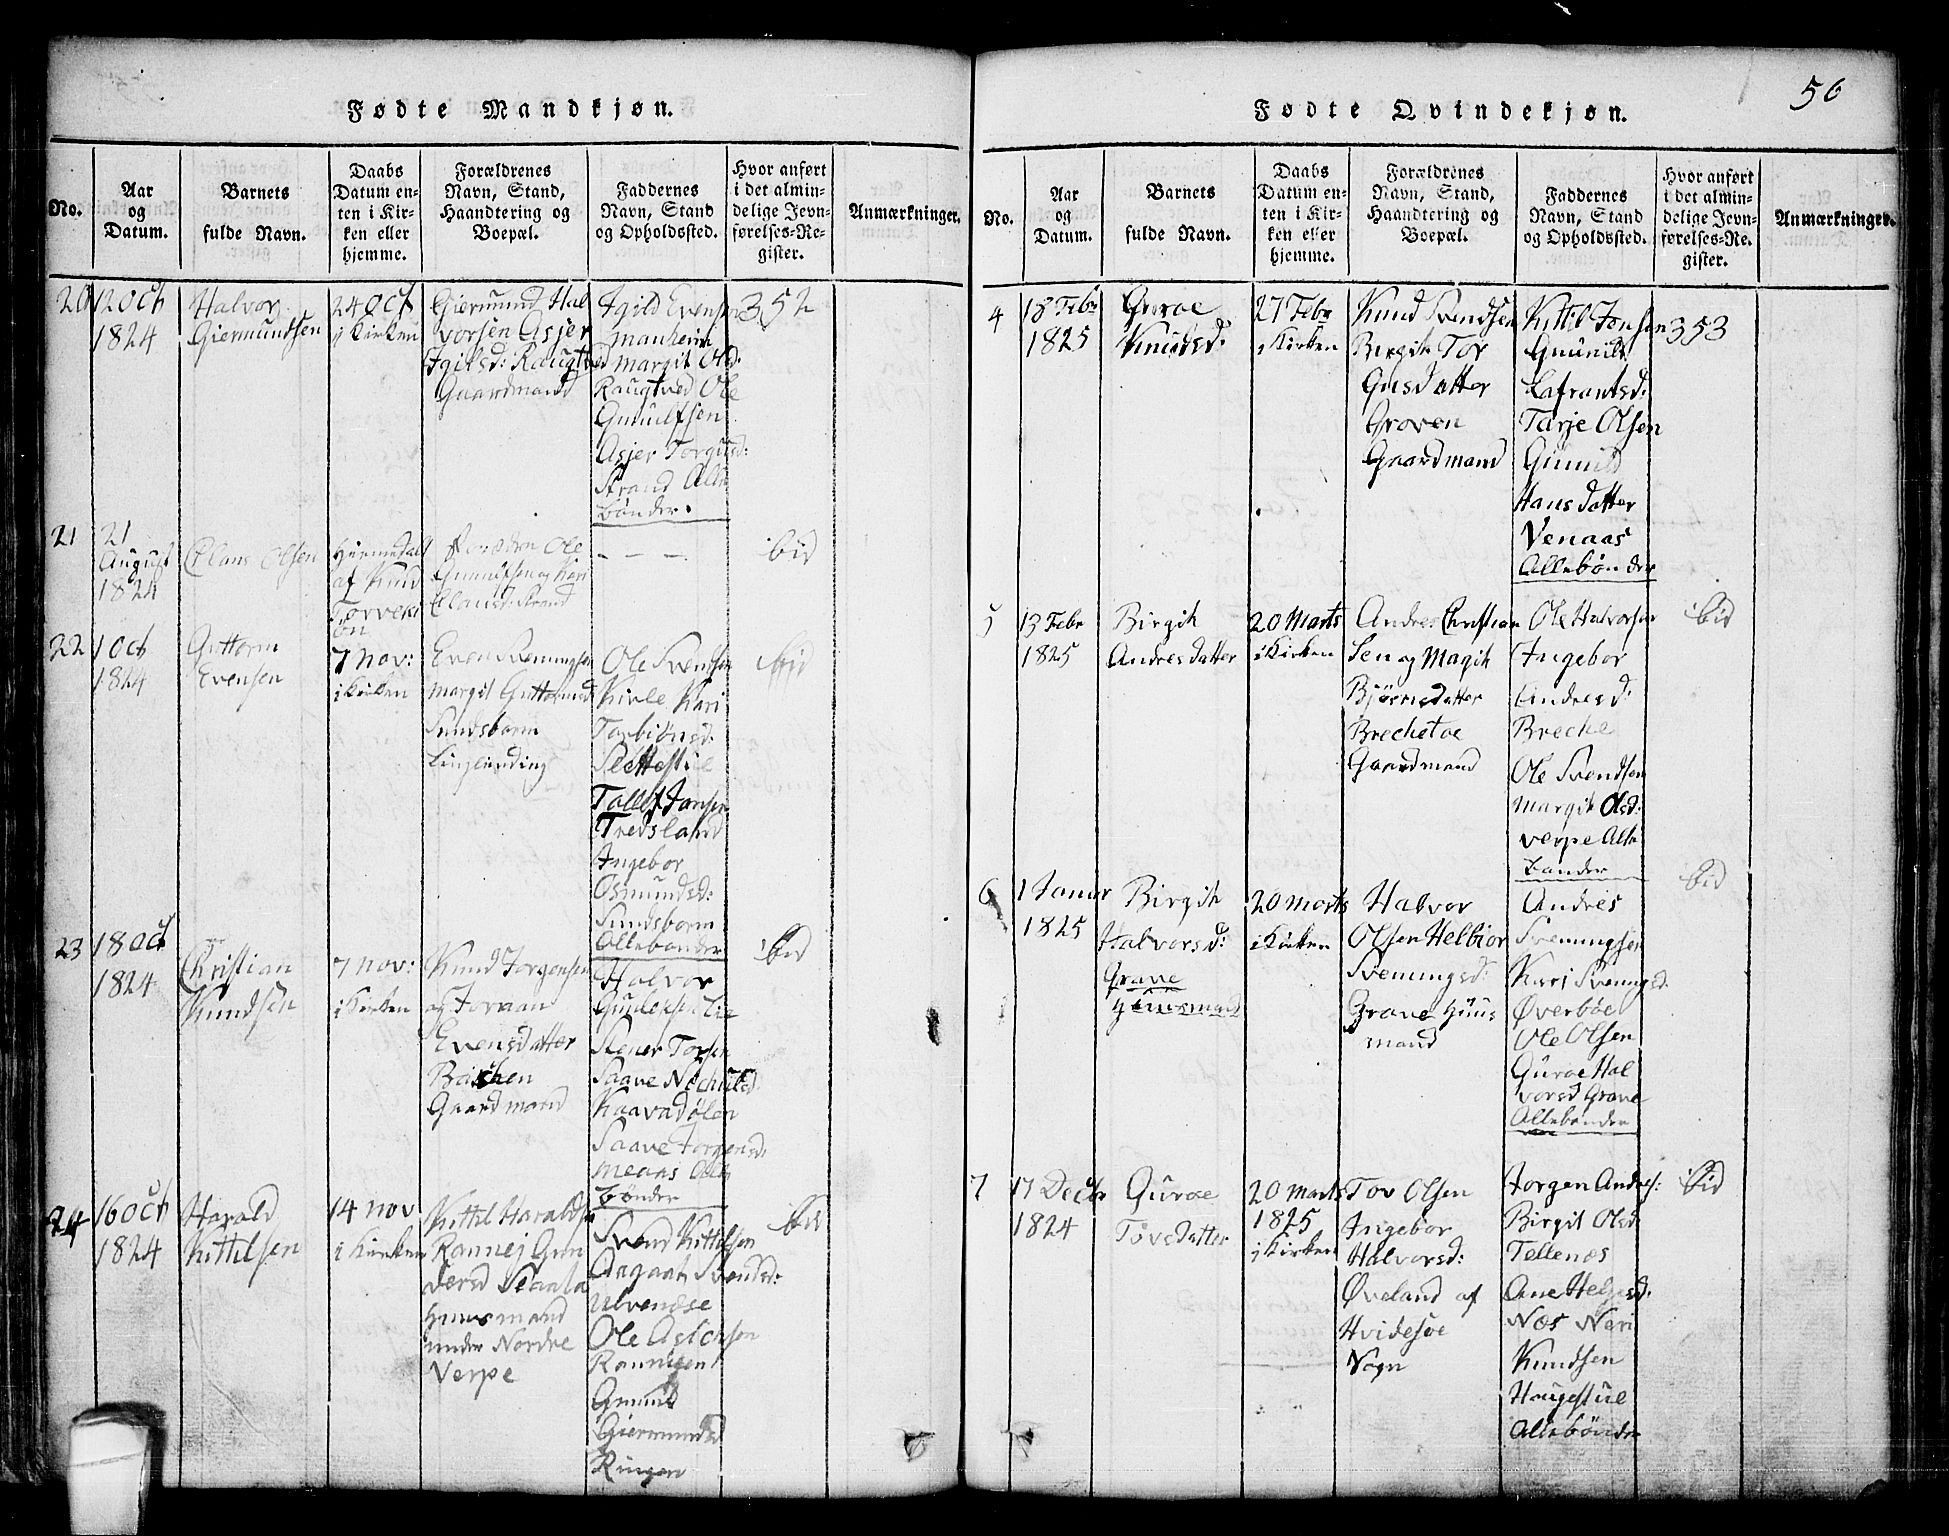 Fødte Mandkjøn.
No.
Aar
og
Datum.
Barnets
fulde Navn.
Daabs
Datum en-
ten i Kir-
ken eller
hjemme.
Forældrenes
Navn, Stand,
Haandtering og
Boepæl.
Faddernes
Navn, Stand
og Opholdssted.
Hvor anført
i det almin-
delige Jevn-
førelses-Re-
gister.
Anmærkninger.
20
12 Oct
1824
Halvor
Giermundsen
24 Oct
i Kirken
Giermund Hal
vorsen Asjer
Igilsd: Raugtved
Gaardmand
Igild Evensen
Manheim
Margit Olsd:
Raugtved Ole
Gunulfsen
Asjer Torgusd:
Strand Alle
bønder.
352
21
21
August
1824
Claus Olsen
Hiemmedøbt
af Knud
Torveki
øn
Forældre Ole
Gunulfsen og Kari
Clausd: Strand
— — —
ibid
22
1 Oct
1824
Guttorm
Evensen
7 Nov:
i Kirken
Even Svenungsen
Margit Guttormsd
Sundsbarm
Ole Svendsen
Kivle Kari
Torbiønsd.
Slettestul
Tollef Jansen
Tredsland
Ingebor
Osmundsd:
Sundsbarm
Allebønder
ibid
23
18 Oct
1824
Christian
Knudsen
7 Nov:
i Kirken
Knud Jorgensen
og Joraan
Evensdatter
Bakken
Gaardmand
Halvor
Gulleksen Lie
Stener Torsen
Saave Nechulsd.
Kaavndølen
Saave Jorgensd.
Meaas Alle
bønder
ibid
24
16 Oct
1824
Harald
Kittilsen
14 Nov
i Kirken
Kittil Haraldsen
Rannej Gun
dersd Staala
Huusmand
under Nordre
Verpe
Svend Kittilsen
Aagaat Svendsd:
Ulvenæse
Ole Aslaksen
Gunild
Giermundsd
Ringen
ibid
56
Fødte Qvindekjøn.
No.
Aar
og
Datum.
Barnets
fulde Navn.
Daabs
Datum en-
ten i Kir-
ken eller
hjemme.
Forældrenes
Navn, Stand,
Haandtering og
Boepæl.
Faddernes
Navn, Stand
og Opholdssted.
Hvor anført
i det almin-
delige Jevn-
førelses-Re-
gister.
Anmærkninger.
4
18 Febr
1825
Guroe
Knudsd:
27 Febr
i Kirken
Knud Svendsen
Birgit Tor
Gusdatter
Groven
Gaardmand
Kittil Jonsen
Gunild
Lafrantsd:
Tarje Olsen
Gunild
Hansdatter
Venaas
Allebønder
353
5
13 Febr
1825
Birgit
Andresdatter
20 Marts
i Kirken
Andres Christian
Sen og Magit
Bjørnsdatter
Brechetoe
Gaardmand
Ole Halvorsen
Ingebor
Andresd:
Breche
Ole Svendsen
Margit Olsd:
Verpe Alle
bønder
ibid
6
1 Januar
1825
Birgit
Halvorsd:
Grave
Huusmand
20 Marts
i Kirken
Halvor
Olsen Helbior
Svenungsd:
Grave Huus
mand
Andres
Svenungsen
Kari Svenungsd.
Øverbøe
Ole Olsen
Guroe Hal
vorsd Grave
Allebønder
ibid
7
17 Decbr
1824
Guroe
Tovedatter
20 Marts
1825
i Kirken
Tov Olsen
Ingebor
Halvorsd:
Øveland af
Hvidesøe
Sogn
Jorgen Andres:
Birgit Olsd
Tellenæs
Ane Helgesd.
Næs Neri
Knudsen
Haugestul
Allebønder
ibid